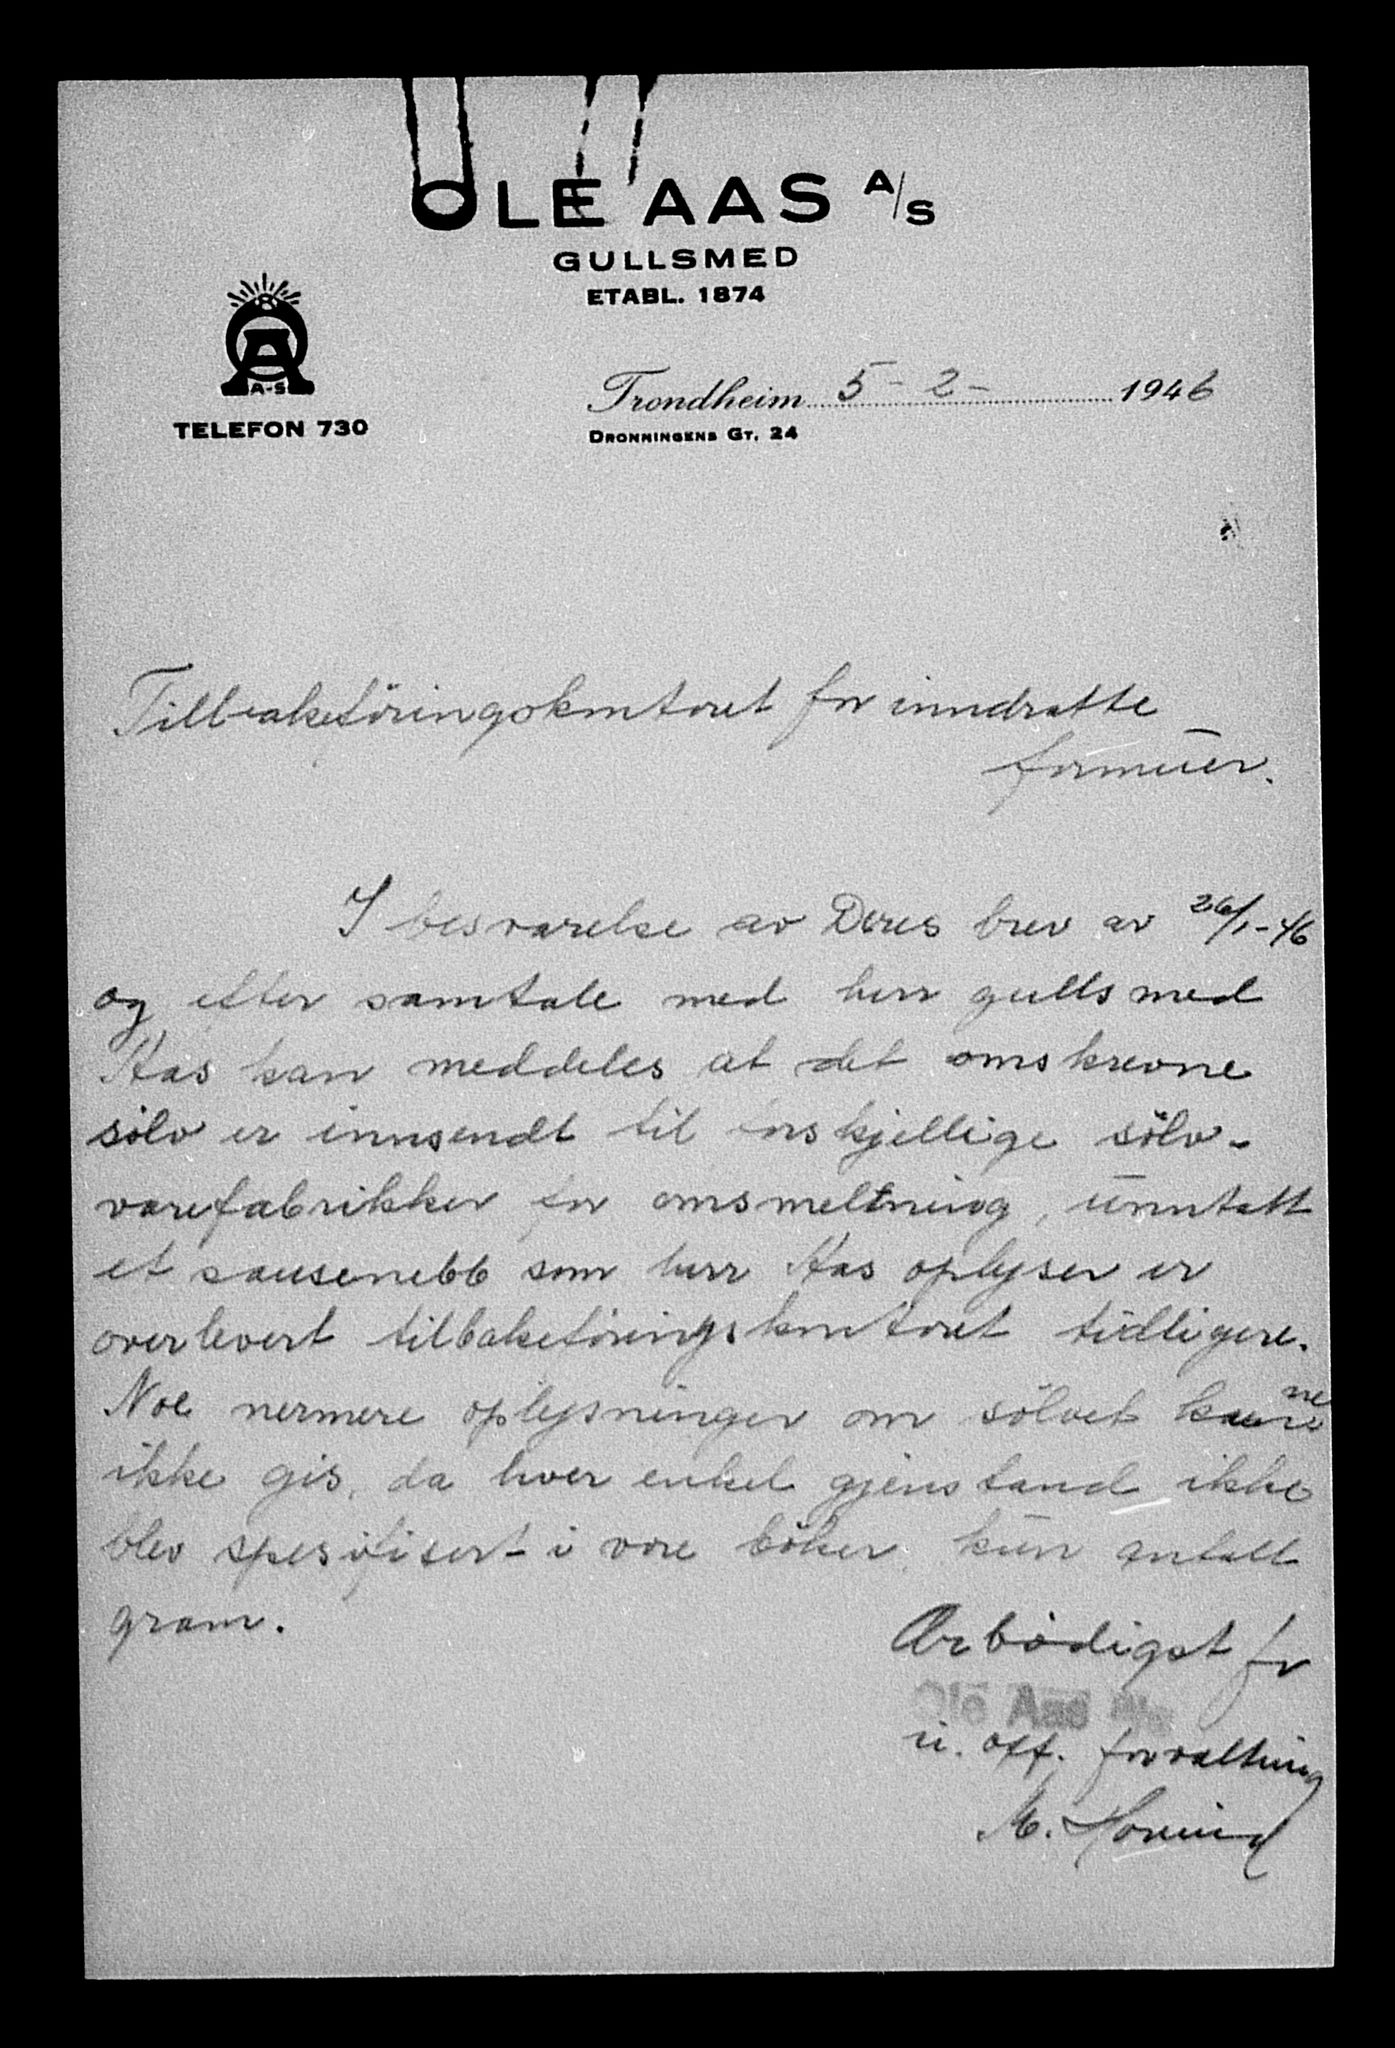 OLE AAS A/S
GULLSMED
ETABL. 1874
A-S
TELEFON 730
Trondheim 5 - 2 - 1946
DRONNINGENS GT. 24
Tilbakeföringskontoret for inndratte
formuer.
I besvarelse av Deres brev av 26/1-46
og efter samtale med herr gullsmed
Aas kan meddeles at det omskrevne
sölv er innsendt til forskjellige sölv-
varefabrikker for omsmeltning, unntatt
et sausenebb som herr Aas oplyser er
overlevert tilbakeföringskontoret tidligere.
Noe nermere oplysninger om sölvet kunne
ikke gis, da hver enkel gjenstand ikke
blev spesifisert i våre böker, kun antall
gram.
Ærbödigst for
Ole Aas A/S
u. off. forvaltning
M.